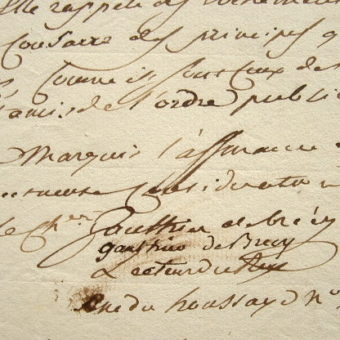 elle rappelle des
consacre des principes q
comme ils sont ceux de
l'amis de l'ordre publi
Marquis l'assurance
considération
le Ch.er Gauthier de Brécy
gauthier de Brecy
Lecteur du Roy
rue du houssaye n°